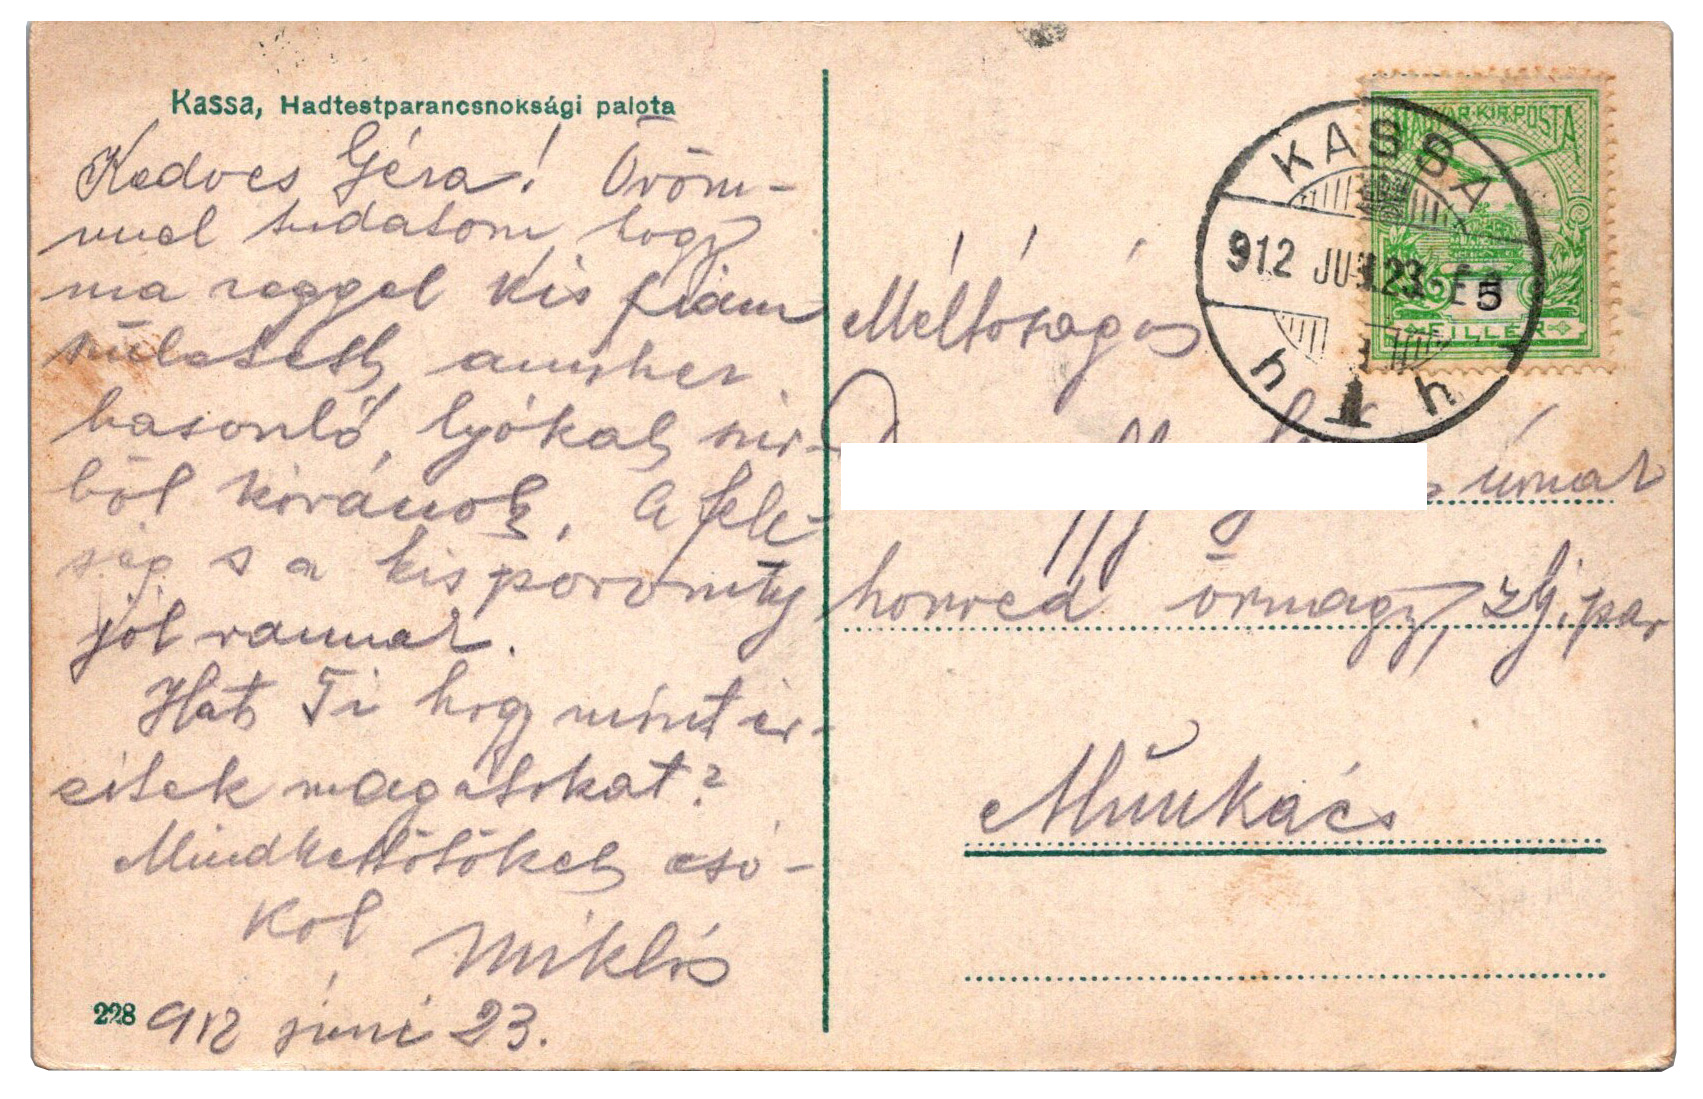 Kassa, Hadtestparancsnoksági palota
Kedves Géza! Öröm-
mel tudatom, hogy
ma reggel kis fiam
született, amihez
hasonló jókat szív-
ből kivánok. A fele-
ség s a kis poronty
jól vannak.
Hát Ti hogy mint ér-
zitek magatokat?
Mindkettőtöket csó-
kol Miklós
228 912 juni 23.
MAGYAR KIR. POSTA
KASSA
912 JUN 23
5
FILLÉR
h 1 h
Méltóságos
úrnak
honvéd őrnagy,
Munkács